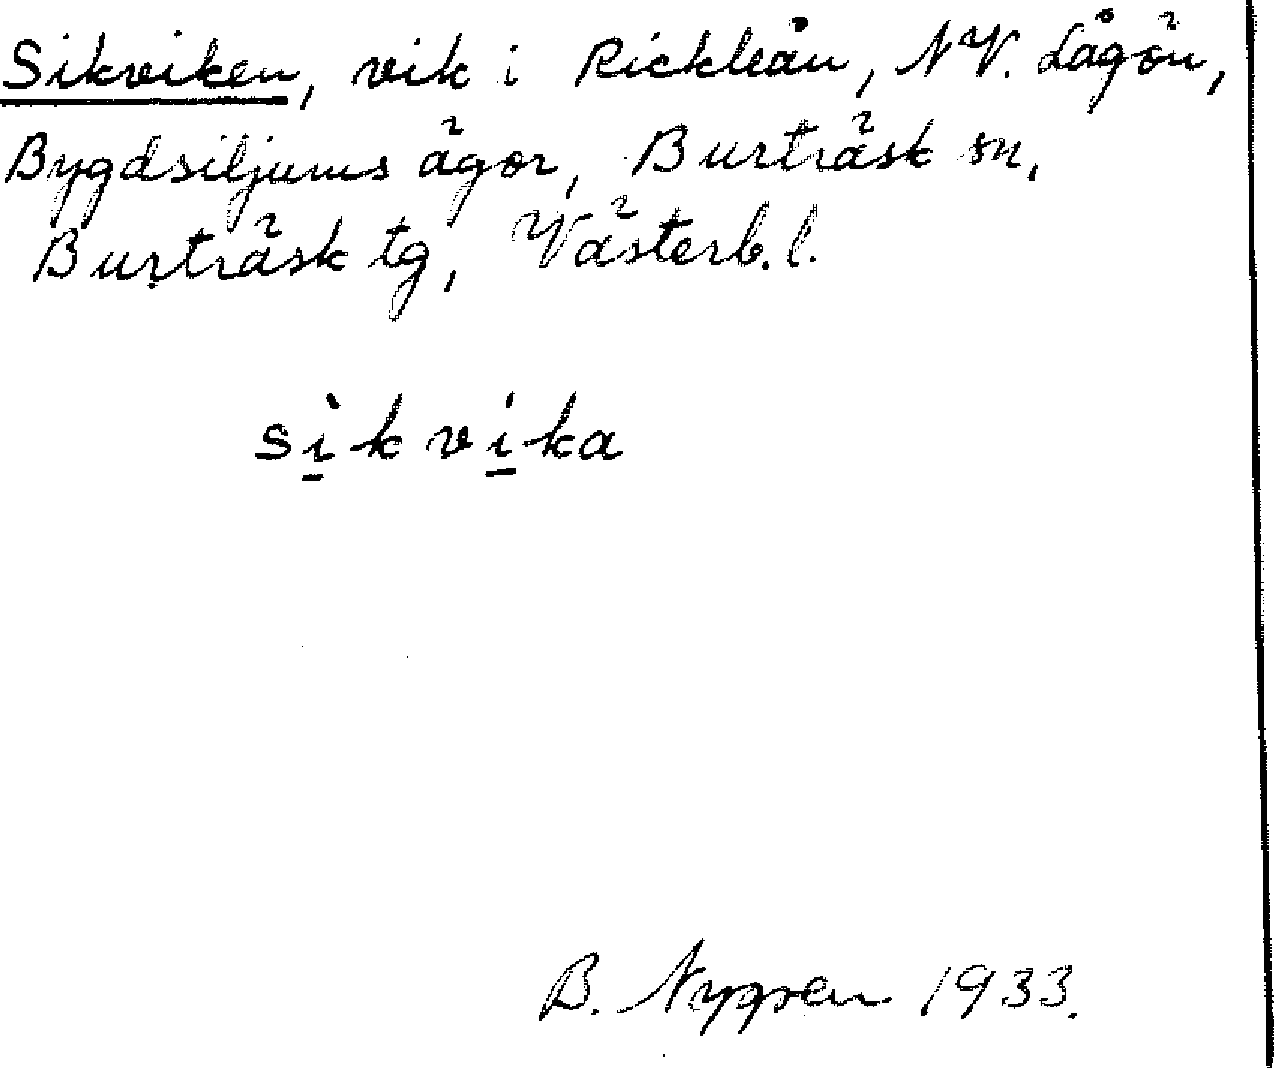 Sikviken, vik i Rickleån, NV. Lågön,
Bygdsiljums ägor, Burträsk sn,
Burträsk tg, Västerb. l.
sì̱kvi̱ka
B. Nygren 1933.